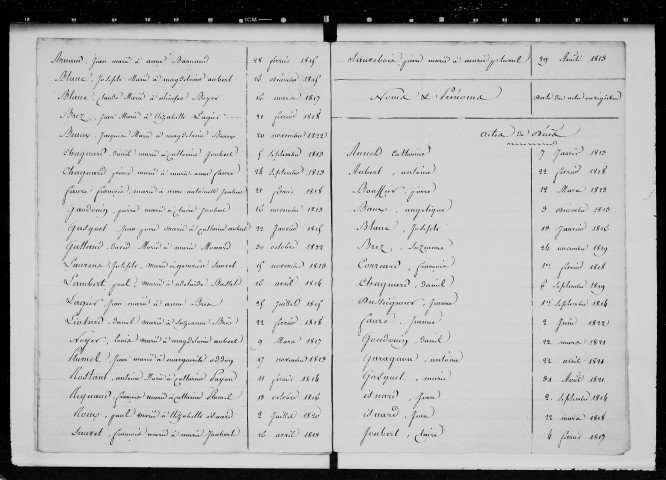 Armand, jean marié à anne Barnaud 28 fevrier 1815
Blanc, Joseph Marié à magdelaine aubert 16 novembre 1815
Blanc, Claude Marié à Boyer 16 mars 1817
Brez, jean Marié à Elizabette Lagier 21 fevrier 1818
Beaux, Jacques Marié à magdelaine Beaux 20 novembre 1822
Chagnard, daniel marié à Catherine Joubert 5 Septembre 1813
Chagnard pierre marié à marie anne faure 24 Septembre 1813
faure francois, marié à anne antoinette Joubert 21 fevrier 1818
Gaudouin, pierre marié à Claire Joubert 16 novembre 1813
Gasquet, jean pierre marié à Catherine aubert 22 Janvier 1815
Galland, david Marié à marie Monard 30 octobre 1822
Laurens, Joseph, marié à genevieve Sauret 15 novembre 1813
Lambert, paul, marié à adelaide Battet 16 avril 1814
Lagier jean marié à anne Brès 25 juillet 1815
Liotard, daniel marié à Suzanne Brès 22 fevrier 1818
Noyer, louis marié à magdelaine aubert 9 Mars 1817
jean marié à marguerite oddoz 17 novembre 1813
Rostant, antoine Marié à Catherine Payon 11 fevrier 1814
Reynaud, francois marié à Catherine 18 octobre 1816
Roux, paul marié à Elizabette isnard 2 Juillet 1820
Sauret, francois marié à marie Joubert 16 avril 1818
pierre marié à marie 29 Août 1813
Noms & Prénoms date des actes enregistrés
actes de décès
Catherine 7 Janvier 1813
Aubert, antoine 22 fevrier 1818
Bouffier, pierre 12 Mars 1813
Baux, angelique 3 decembre 1813
Blanc, Joseph 19 Janvier 1816
Brez, Suzanne 24 novembre 1819
Correard, francois 1er fevrier 1818
Chagnard, daniel 6 Septembre 1819
Jeanne 1er Septembre 1814
faure, Jeanne 2 Juin 1822
Goudouin, daniel 22 mars 1821
Garagnon, antoine 22 avril 1821
Gasquet, marie 31 Août 1821
isnard, Jean 2 Septembre 1814
isnard, Jean 22 mars 1818
Joubert, Claire 4 fevrier 1817